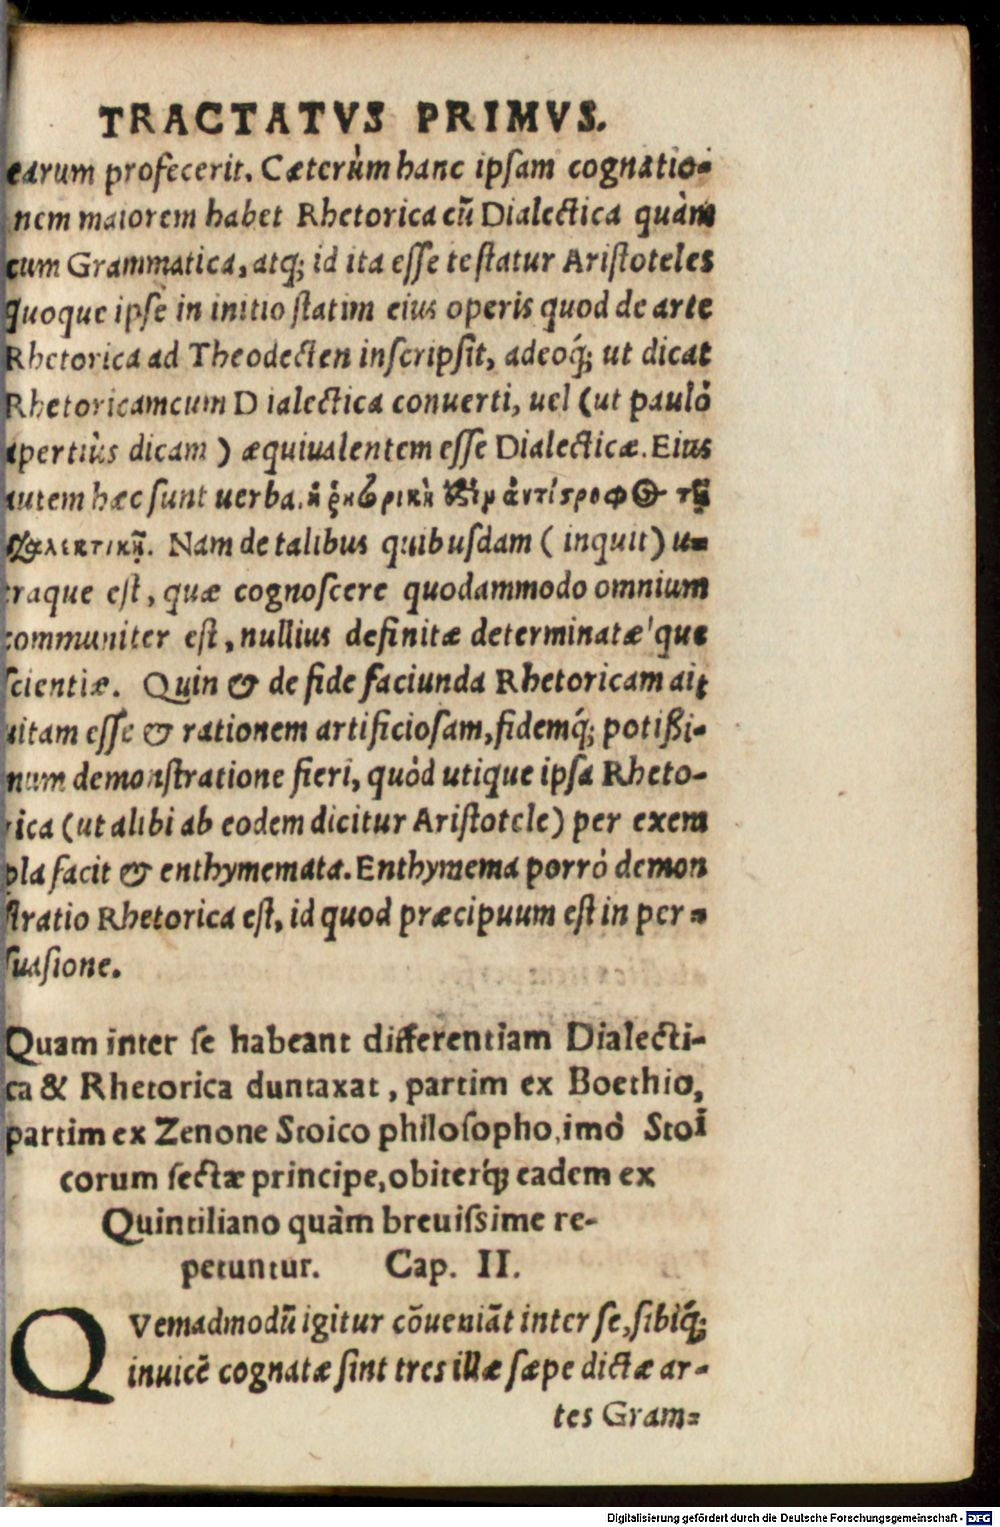 TRACTATVS PRIMVS.
earum profecerit. Cæterùm hanc ipſam cognatio-
nem maiorem habet Rhetorica cũ Dialectica quàm
cum Grammatica, atq; id ita eſſe teſtatur Ariſtoteles
quoque ipſe in initio ſtatim eius operis quod de arte
Rhetorica ad Theodecten inſcripſit, adeoq́; ut dicat
Rhetoricamcum D ialectica conuerti, uel (ut paulò
apertiùs dicam ) æquiualentem eſſe Dialecticæ. Eius
autem hæc sunt uerba. ἡ ῥητορικὴ ἐστιν ἀντίστροφος τῇ
διαλεκτικῇ. Nam de talibus quibuſdam ( inquit) u-
traque eſt, quæ cognoſcere quodammodo omnium
communiter eſt, nullius definitæ determinatæ'que
ſcientiæ. Quin & de fide faciunda Rhetoricam ait
uitam eſſe & rationem artificioſam, fidemq́; potißi-
mum demonſtratione fieri, quòd utique ipſa Rheto-
rica (ut alibi ab eodem dicitur Ariſtotele) per exem
pla facit & enthymemata. Enthymema porrò demon
ſtratio Rhetorica eſt, id quod præcipuum eſt in per-
ſuaſione.
Quam inter ſe habeant differentiam Dialecti-
ca & Rhetorica duntaxat, partim ex Boethio,
partim ex Zenone Stoico philoſopho, imò Stoi
corum ſectæ principe, obiterq́; eadem ex
Quintiliano quàm breuiſsime re-
petuntur. Cap. II.
QVemadmodũ igitur cõueniãt inter ſe, ſibiq́;
inuicẽ cognatæ ſint tres illæ ſæpe dictæ ar-
tes Gram-
Digitalisierung gefördert durch die Deutsche Forschungsgemeinschaft - DFG